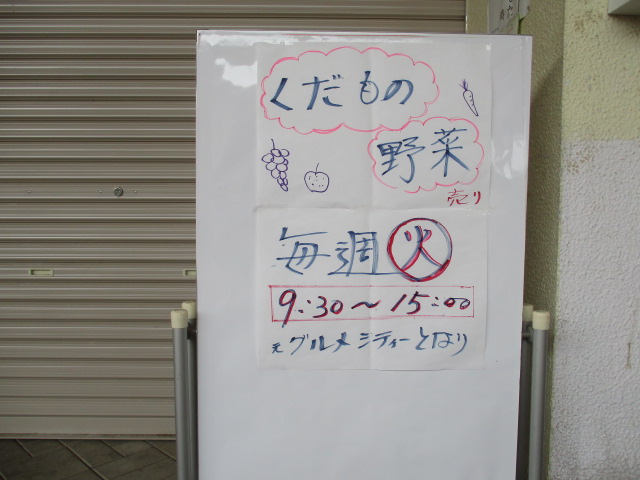 くだもの
野菜
売り
毎週火
9:30〜15:00
元グルメシティーとなり